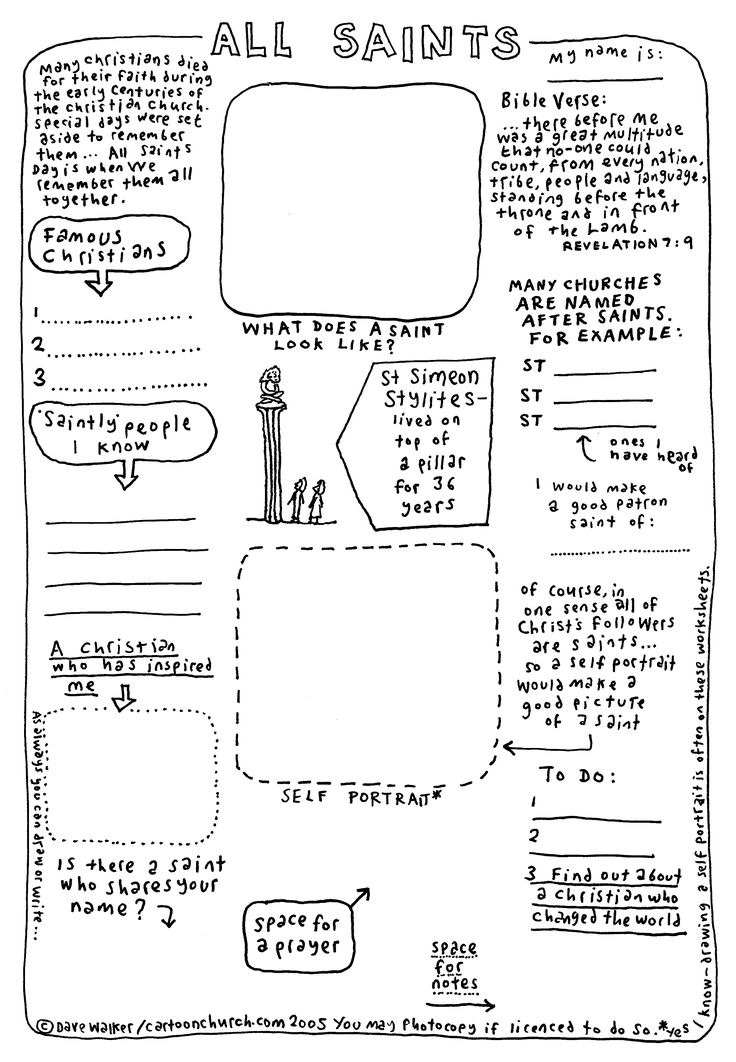 ALL SAINTS
Many Christians died
for their faith during
the early centuries of
the Christian Church.
Special days were set
aside to remember
them... All Saints
Day is when we
remember them all
together.
Famous
Christians
1..........................
2..........................
3..........................
'Saintly' people
I know
A Christian
who has inspired
me
As always you can draw or write...
Is there a saint
who shares your
name?
WHAT DOES A SAINT
LOOK LIKE?
St Simeon
Stylites-
lived on
top of
a pillar
for 36
years
SELF PORTRAIT*
space for
a prayer
space
for
notes
My name is:
Bible Verse:
...there before me
was a great multitude
that no-one could
count, from every nation,
tribe, people and language,
standing before the
throne and in front
of the Lamb.
REVELATION 7:9
MANY CHURCHES
ARE NAMED
AFTER SAINTS.
FOR EXAMPLE:
ST
ST
ST
ones I
have heard
of
I would make
a good patron
saint of:
of course, in
one sense all of
Christ's followers
are saints...
so a self portrait
would make a
good picture
of a saint
To Do:
1
2
3 Find out about
a Christian who
changed the world
© Dave Walker/cartoonchurch.com 2005 You may photocopy if licenced to do so.
*Yes I know-drawing a self portrait is often on these worksheets.